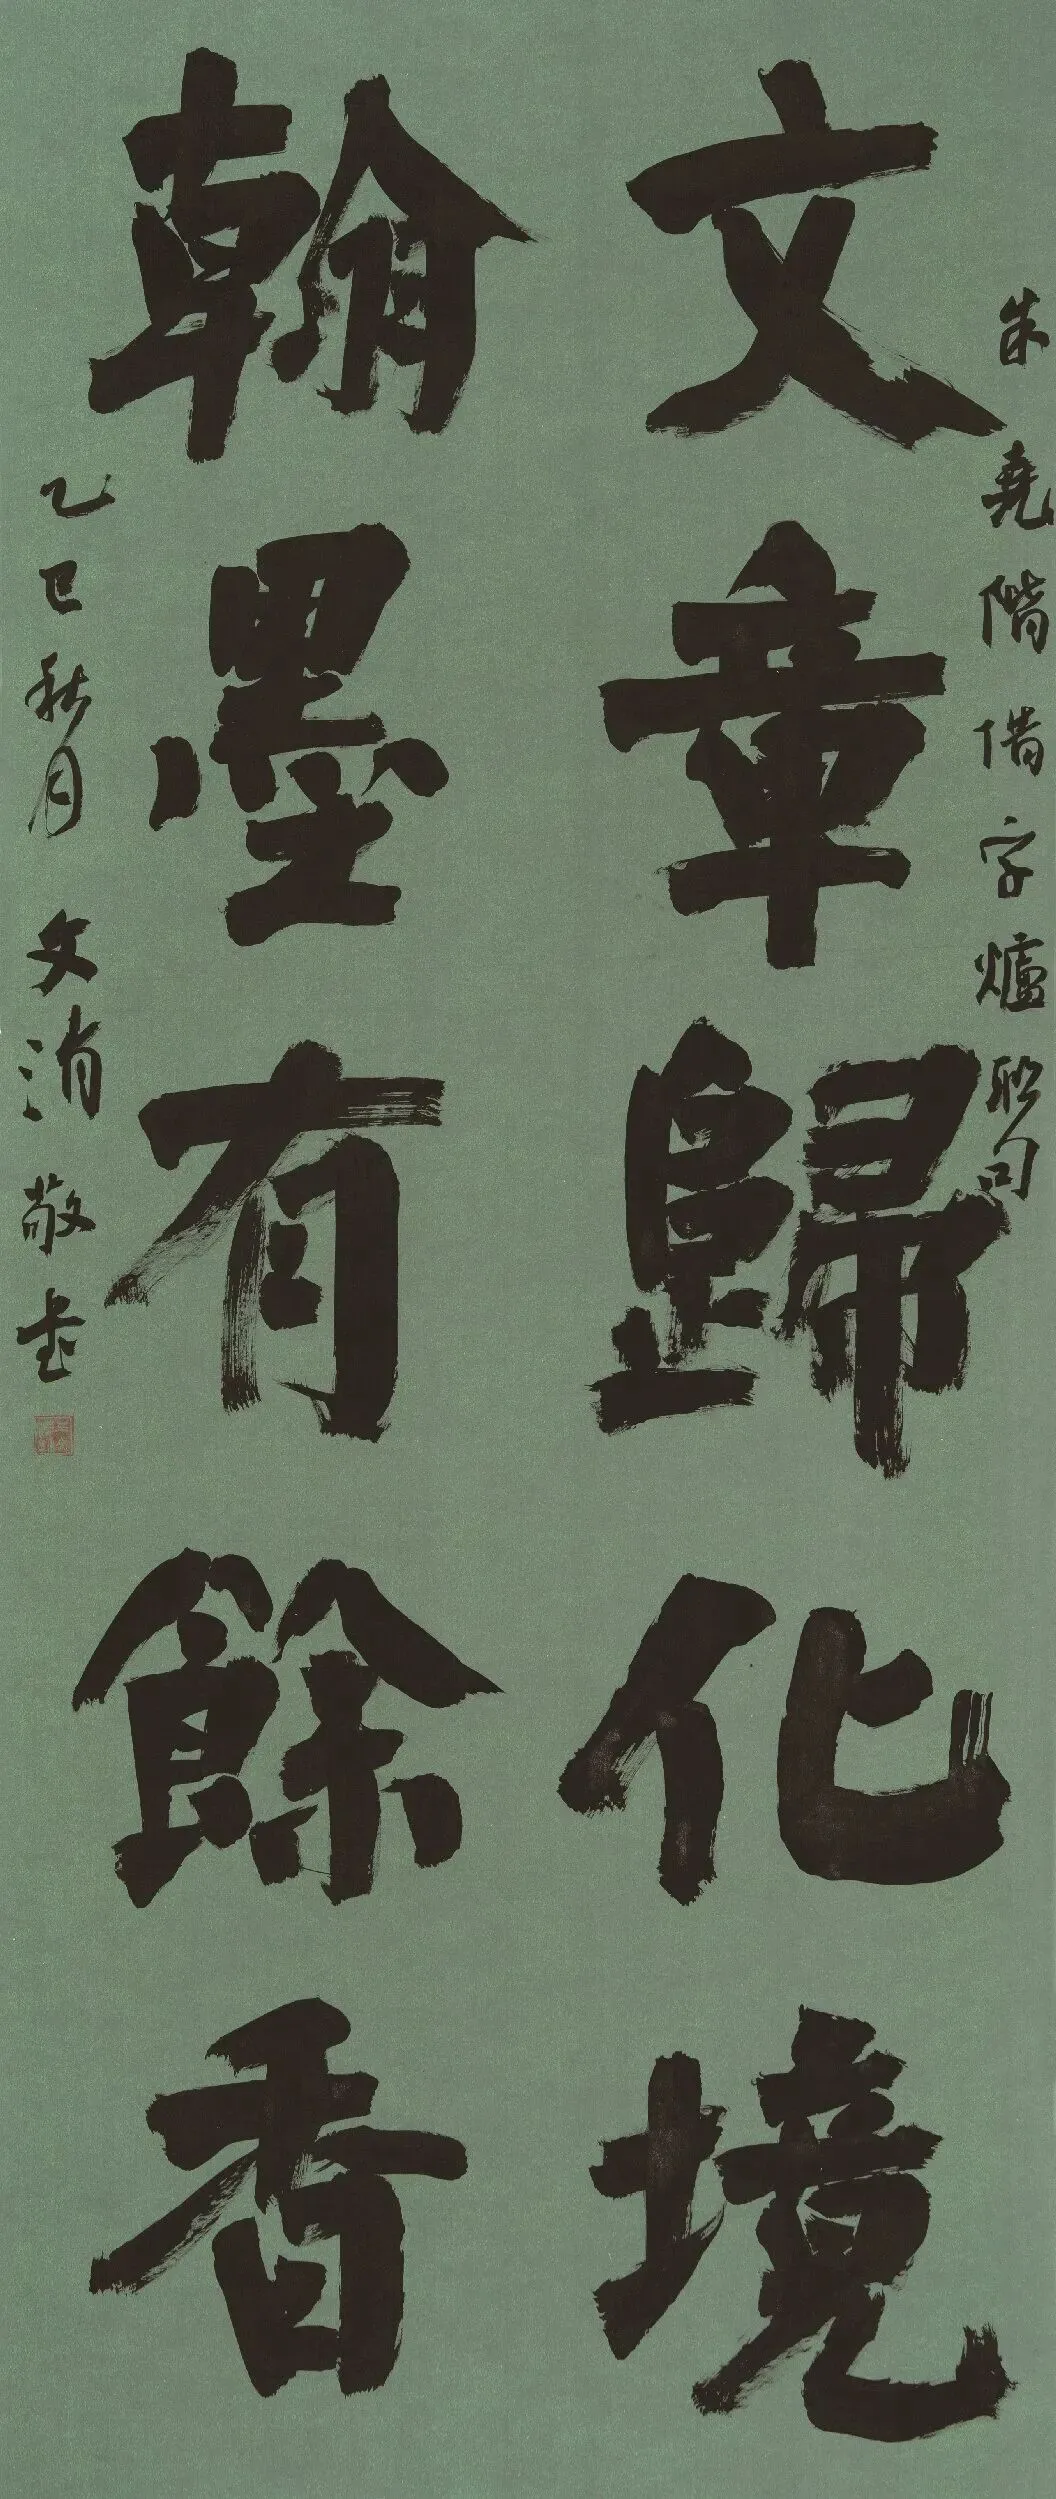 文章歸化境
翰墨有餘香
朱堯階借字爐聯句
乙巳秋月 文消敬書